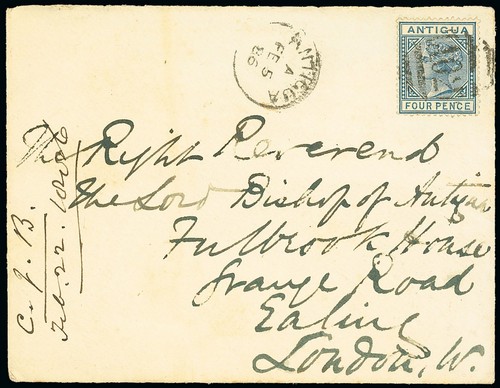 ANTIGUA
FOUR PENCE
ANTIGUA
A
FE 5
86
The Right Reverend
The Lord Bishop of Antigua
Fulbrook House
Grange Road
Ealing
London, W.
C. J. B.
Feb. 22.